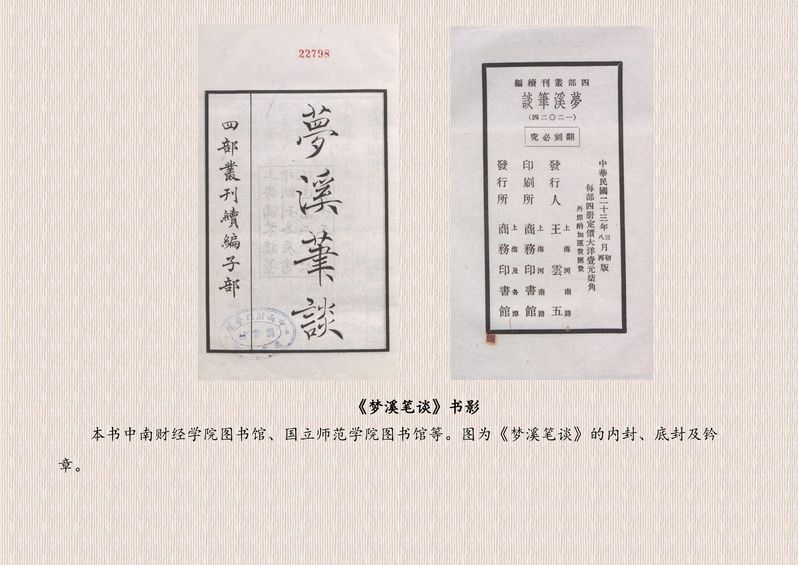 22798
夢溪筆談
四部叢刊續編子部
四部叢刊續編
夢溪筆談
(一二〇二四)
翻刻必究
中華民國二十三年三月初版
八月再版
每部四册定價大洋壹元柒角
外埠酌加運費匯費
發行人 王雲五 上海河南路
印刷所 商務印書館 上海河南路
發行所 商務印書館 上海及各埠
《梦溪笔谈》书影
本书中南财经学院图书馆、国立师范学院图书馆等。图为《梦溪笔谈》的内封、底封及钤
章。